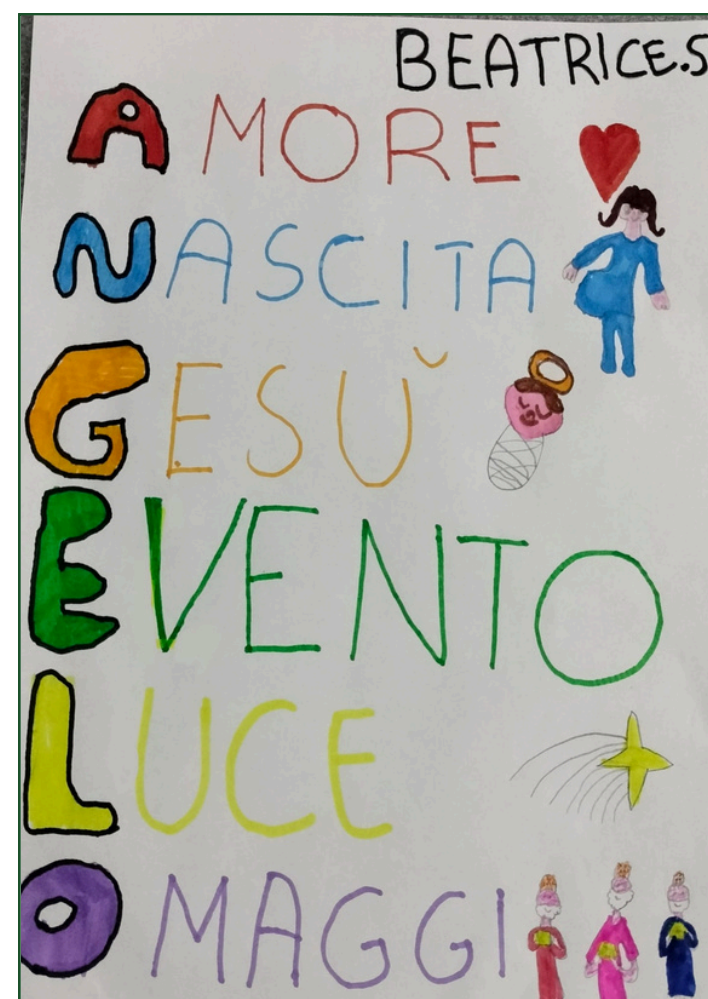 BEATRICE.S
AMORE
NASCITA
GESŬ
EVENTO
LUCE
OMAGGI